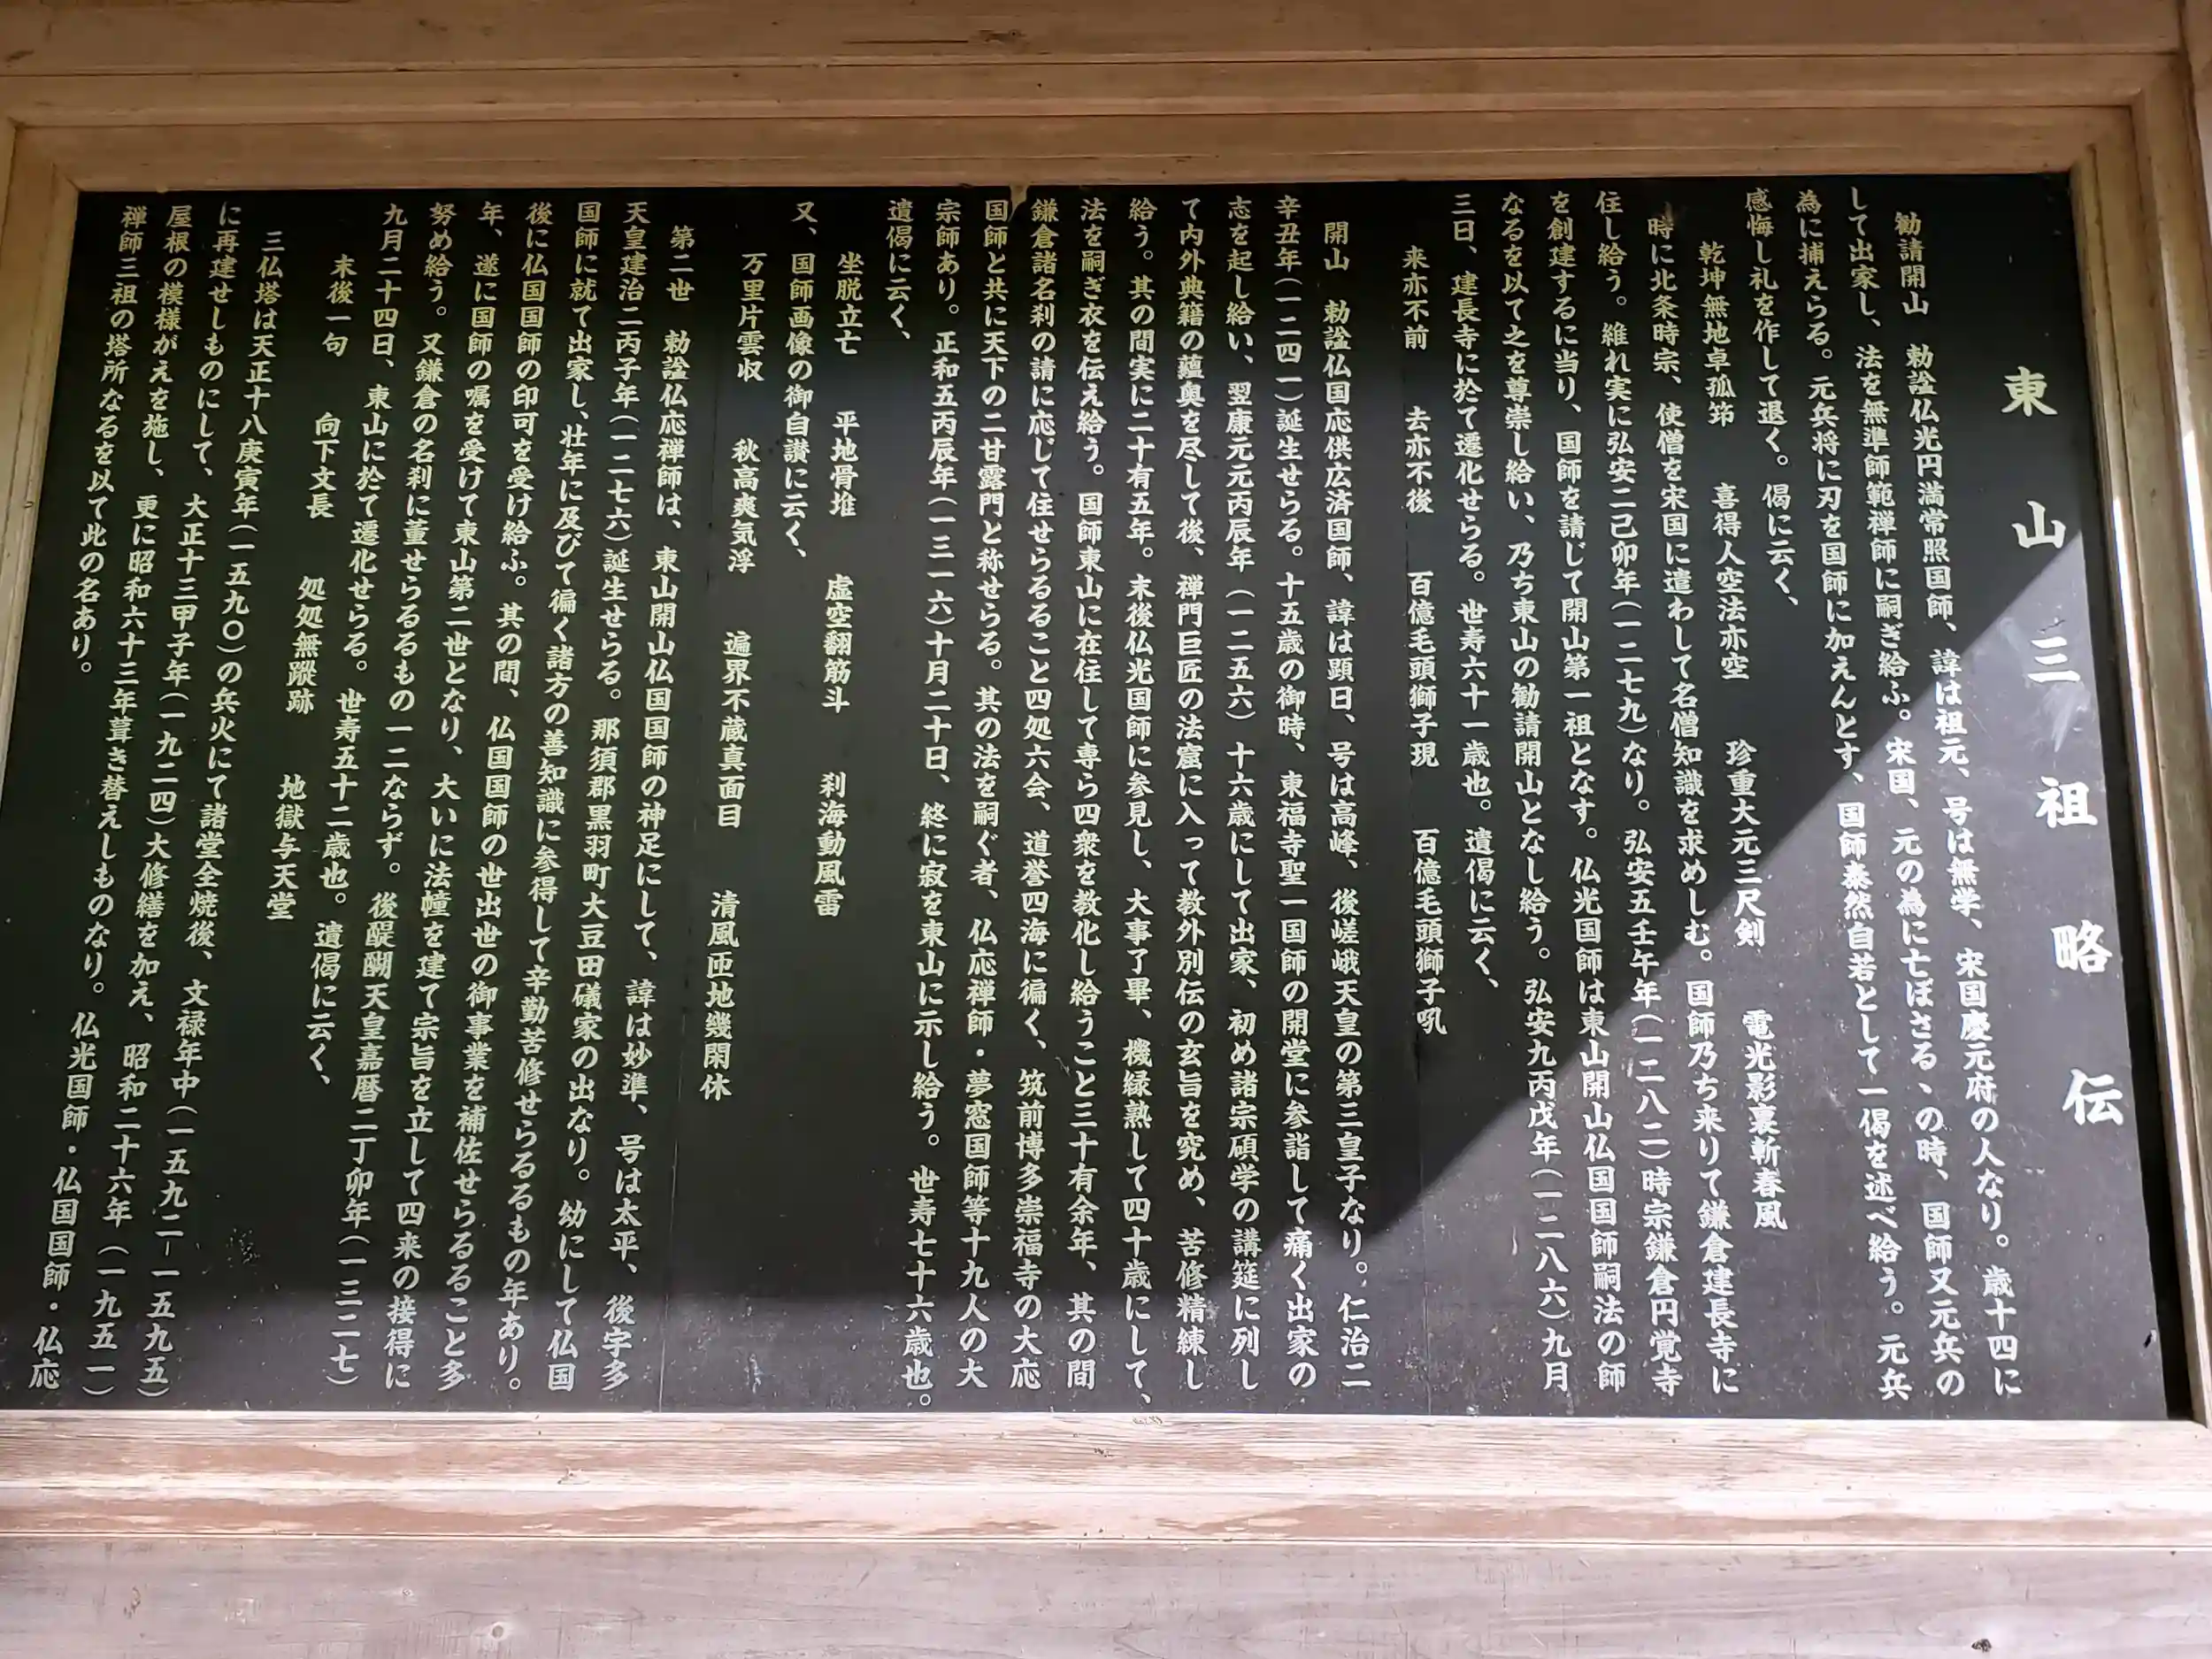 東山三祖略伝
勧請開山　勅諡仏光円満常照国師、諱は祖元、号は無学、宋国慶元府の人なり。歳十四に
して出家し、法を無準師範禅師に嗣ぎ給ふ。宋国、元の為に亡ぼさるゝの時、国師又元兵の
為に捕えらる。元兵将に刃を国師に加えんとす、国師泰然自若として一偈を述べ給う。元兵
感悔し礼を作して退く。偈に云く、
乾坤無地卓孤筇　喜得人空法亦空　珍重大元三尺剣　電光影裏斬春風
時に北条時宗、使僧を宋国に遣わして名僧知識を求めしむ。国師乃ち来りて鎌倉建長寺に
住し給う。維れ実に弘安二己卯年（一二七九）なり。弘安五壬午年（一二八二）時宗鎌倉円覚寺
を創建するに当り、国師を請じて開山第一祖となす。仏光国師は東山開山仏国国師嗣法の師
なるを以て之を尊崇し給い、乃ち東山の勧請開山となし給う。弘安九丙戌年（一二八六）九月
三日、建長寺に於て遷化せらる。世寿六十一歳也。遺偈に云く、
来亦不前　去亦不後　百億毛頭獅子現　百億毛頭獅子吼
開山　勅諡仏国応供広済国師、諱は顕日、号は高峰、後嵯峨天皇の第三皇子なり。仁治二
辛丑年（一二四一）誕生せらる。十五歳の御時、東福寺聖一国師の開堂に参詣して痛く出家の
志を起し給い、翌康元元丙辰年（一二五六）十六歳にして出家、初め諸宗碩学の講筵に列し
て内外典籍の蘊奥を尽して後、禅門巨匠の法窟に入って教外別伝の玄旨を究め、苦修精練し
給う。其の間実に二十有五年。末後仏光国師に参見し、大事了畢、機縁熟して四十歳にして、
法を嗣ぎ衣を伝え給う。国師東山に在住して専ら四衆を教化し給うこと三十有余年、其の間
鎌倉諸名刹の請に応じて住せらるること四処六会、道誉四海に徧く、筑前博多崇福寺の大応
国師と共に天下の二甘露門と称せらる。其の法を嗣ぐ者、仏応禅師・夢窓国師等十九人の大
宗師あり。正和五丙辰年（一三一六）十月二十日、終に寂を東山に示し給う。世寿七十六歳也。
遺偈に云く、
坐脱立亡　平地骨堆　虚空翻筋斗　刹海動風雷
又、国師画像の御自讃に云く、
万里片雲収　秋高爽気浮　遍界不蔵真面目　清風匝地幾閑休
第二世　勅諡仏応禅師は、東山開山仏国国師の神足にして、諱は妙準、号は太平、後宇多
天皇建治二丙子年（一二七六）誕生せらる。那須郡黒羽町大豆田礒家の出なり。幼にして仏国
国師に就て出家し、壮年に及びて徧く諸方の善知識に参得して辛勤苦修せらるるもの年あり。
後に仏国国師の印可を受け給ふ。其の間、仏国国師の世出世の御事業を補佐せらるること多
年、遂に国師の嘱を受けて東山第二世となり、大いに法幢を建て宗旨を立して四来の接得に
努め給う。又鎌倉の名刹に董せらるるもの一二ならず。後醍醐天皇嘉暦二丁卯年（一三二七）
九月二十四日、東山に於て遷化せらる。世寿五十二歳也。遺偈に云く、
末後一句　向下文長　処処無蹤跡　地獄与天堂
三仏塔は天正十八庚寅年（一五九〇）の兵火にて諸堂全焼後、文禄年中（一五九二－一五九五）
に再建せしものにして、大正十三甲子年（一九二四）大修繕を加え、昭和二十六年（一九五一）
屋根の模様がえを施し、更に昭和六十三年葺き替えしものなり。仏光国師・仏国国師・仏応
禅師三祖の塔所なるを以て此の名あり。